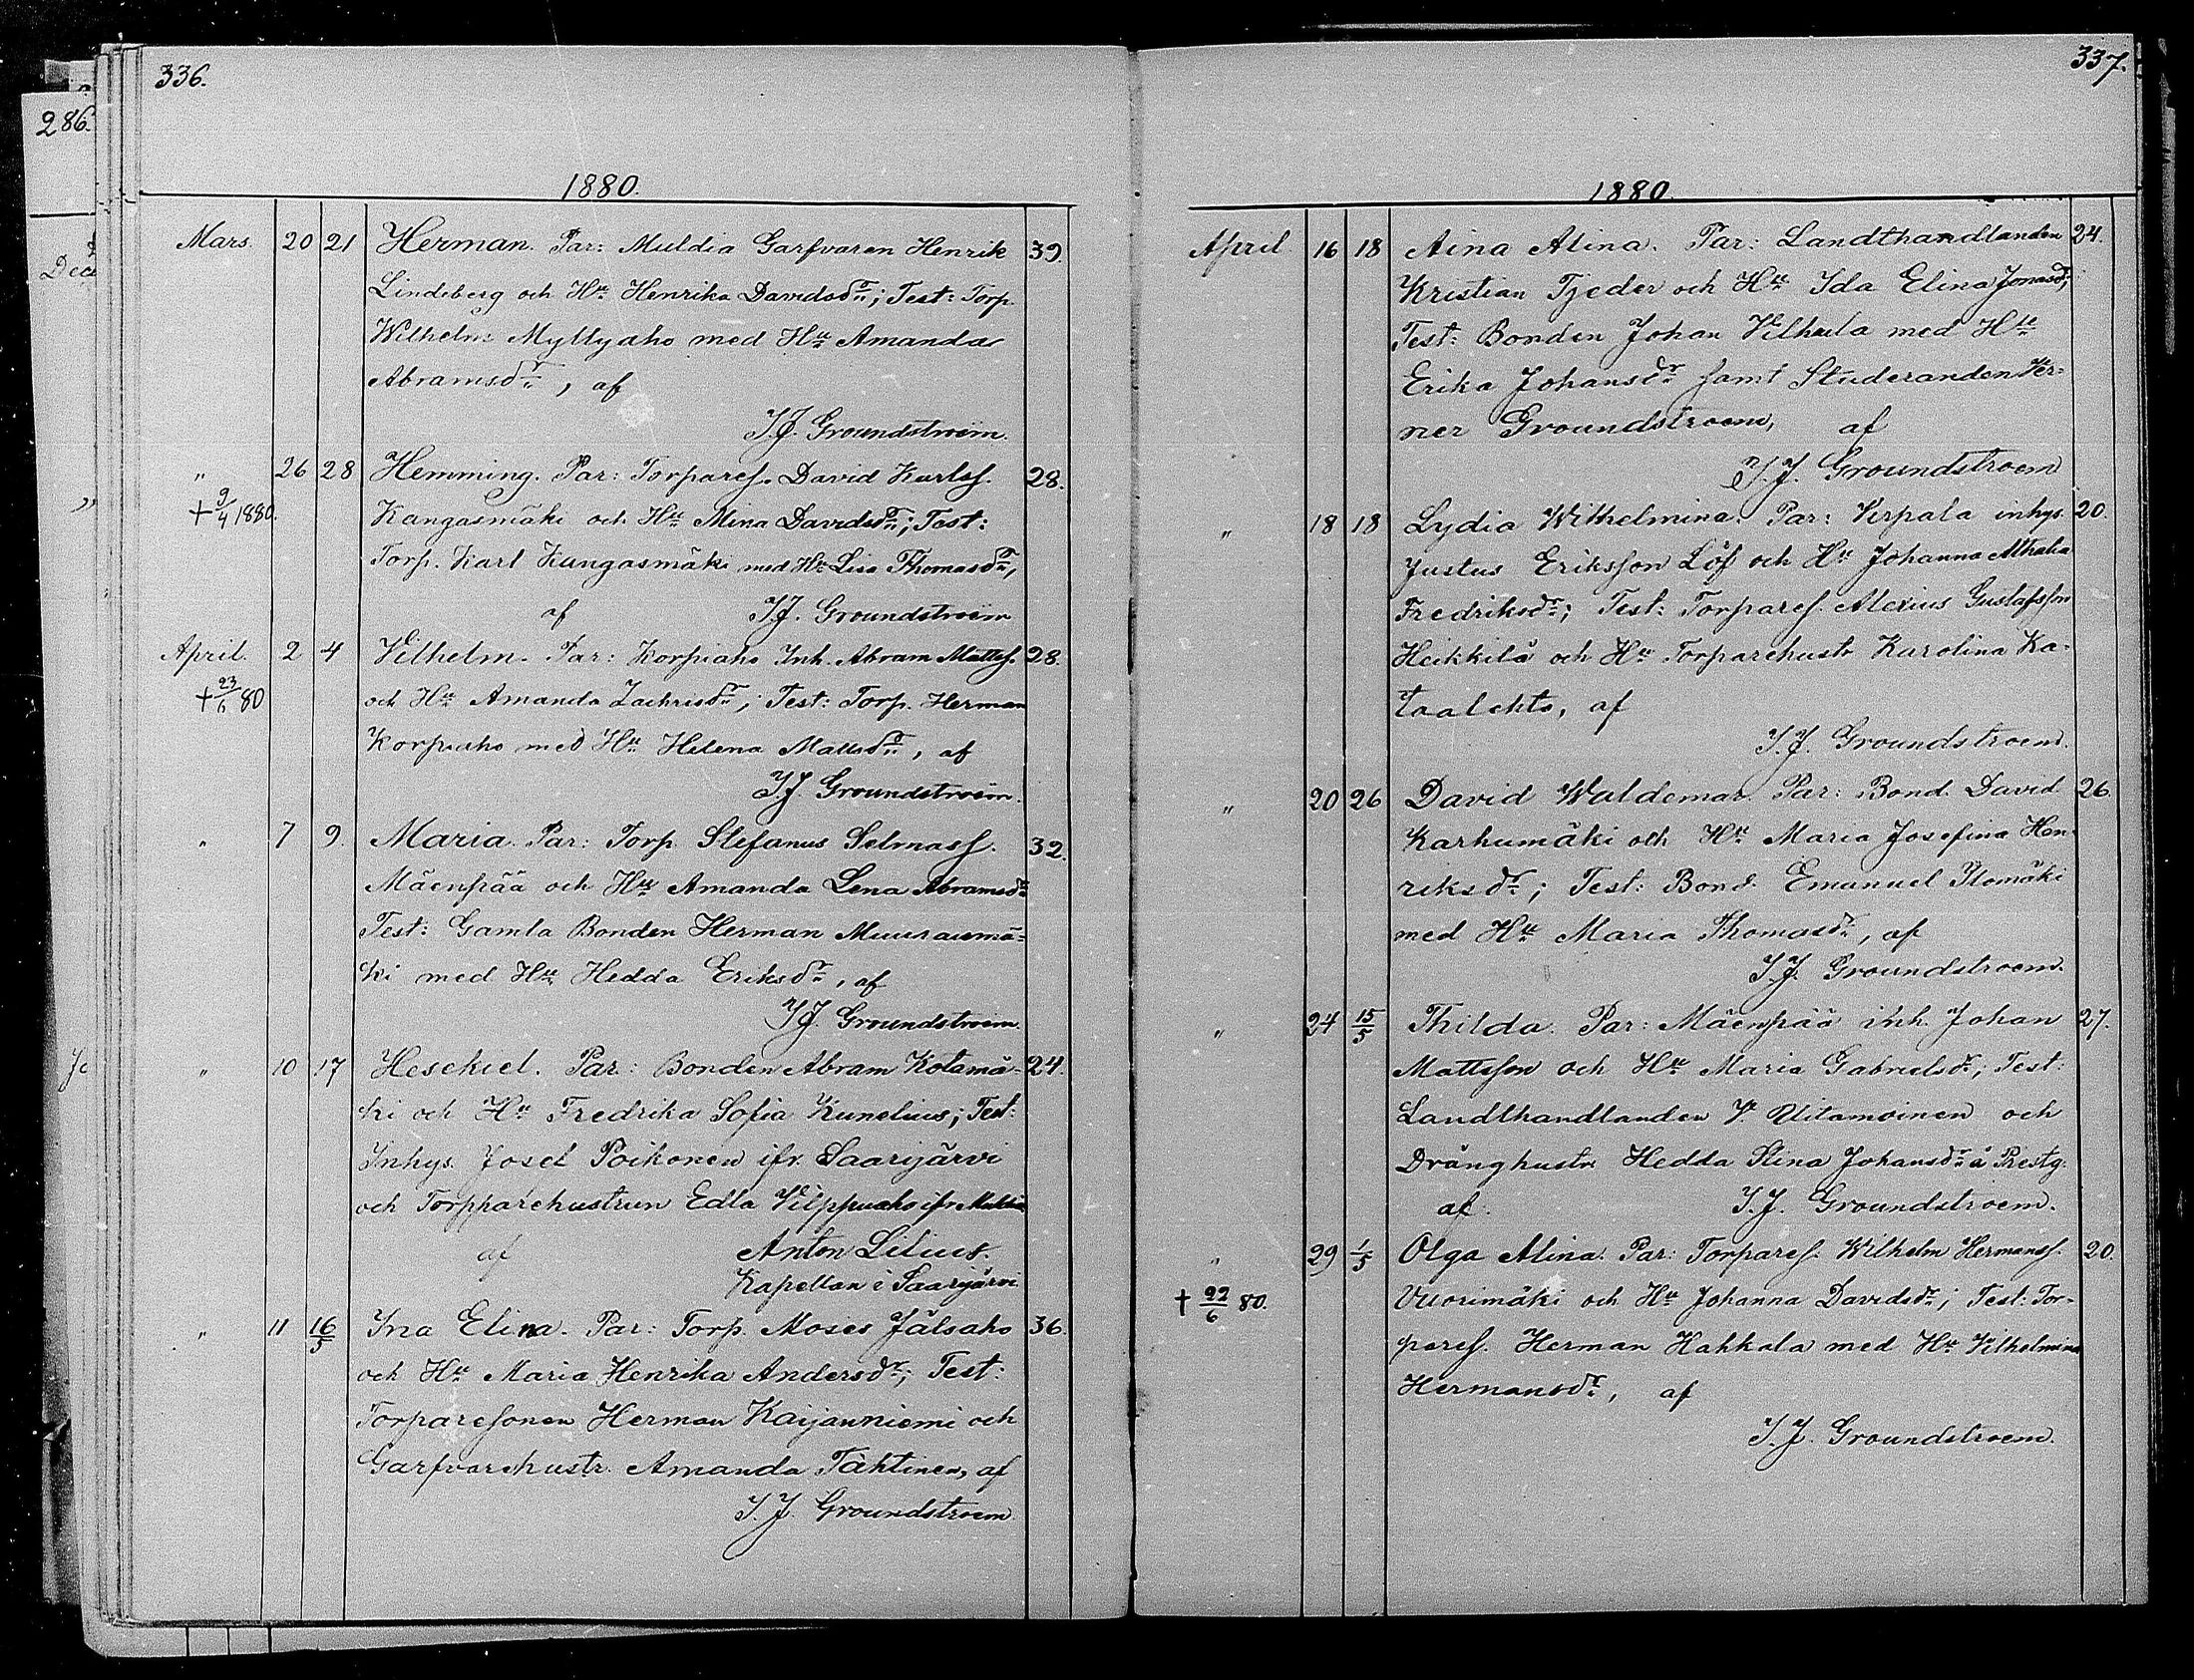 336.
286.
1880.
Mars. 20 21 Herman. Par: Muldia Garfvaren Henrik 39.
Lindeberg och Hu Henrika Davidsdr; Test: Torp.
Wilhelm Myllyaho med Hu Amanda
Abramsdr, af
I.J. Groundstroem.
" 26 28 Hemming. Par: Torparef. David Karlsf. 28.
+ 9/4 1880. Kangasmäki och Hu Mina Davidsdr; Test:
Torp. Karl Kangasmäki med Hu Lisa Thomasdr,
af I.J. Groundstroem
April. 2 4 Vilhelm. Par: Korpiaho Inh. Abram Mattsf. 28.
+ 23/6 80 och Hu Amanda Zachrisdr; Test: Torp. Herman
Korpiaho med Hu Helena Mattsdr, af
I.J. Groundstroem.
" 7 9. Maria. Par: Torp. Stefanus Selmasf. 32.
Mäenpää och Hu Amanda Lena Abramsdr
Test: Gamla Bonden Herman Muuraumä=
ki med Hu Hedda Eriksdr, af
I.J. Groundstroem.
" 10 17 Hesekiel. Par: Bonden Abram Kotamä- 24.
ki och Hu Fredrika Sofia Kunelius; Test:
Inhys. Josef Poikonen ifr. Saarijärvi
och Torpparehustrun Edla Vilppuaho ifr Muldia
af Anton Lilius.
Kapellan i Saarijärvi
" 11 16/5 Ina Elina. Par: Torp. Moses Jälsaho 36.
och Hu Maria Henrika Andersdr; Test:
Torparesonen Herman Kaijanniemi och
Garfvarehustr. Amanda Tähtinen, af
I.J. Groundstroem
337.
1880.
April 16 18 Aina Alina. Par: Landthandlanden 24.
Kristian Tjeder och Hu Ida Elina Jonasdr;
Test: Bonden Johan Vilhula med Hu
Erika Johansdr samt Studeranden Ver=
ner Groundstroem, af
I.J. Groundstroem
" 18 18 Lydia Wilhelmina. Par: Kirpala inhys. 20.
Justus Eriksson Löf och Hu Johanna
Fredriksdr; Test: Torparef. Alexius Gustafsson
Heikkilä och Hu Torparehustr Karolina Ka-
taalehto, af
I.J. Groundstroem.
" 20 26 David Waldemar. Par: Bond. David 26.
Karhumäki och Hu Maria Josefina Hen-
riksdr; Test: Bond. Emanuel Ilomäki
med Hu Maria Thomasdr, af
I.J. Groundstroem.
" 24 15/5 Thilda. Par: Mäenpää inh. Johan 27.
Mattsson och Hu Maria Gabrielsdr; Test:
Landthandlanden V. Uitamoinen och
Dränghustr. Hedda Stina Johansdr å Prestg.
af I.J. Groundstroem.
" 29 1/5 Olga Alina. Par: Torparef. Wilhelm Hermansf. 20.
+ 22/6 80. Vuorimäki och Hu Johanna Davidsdr; Test: Tor-
paref. Herman Hakkala med Hu Vilhelmina
Hermansdr, af
I.J. Groundstroem.